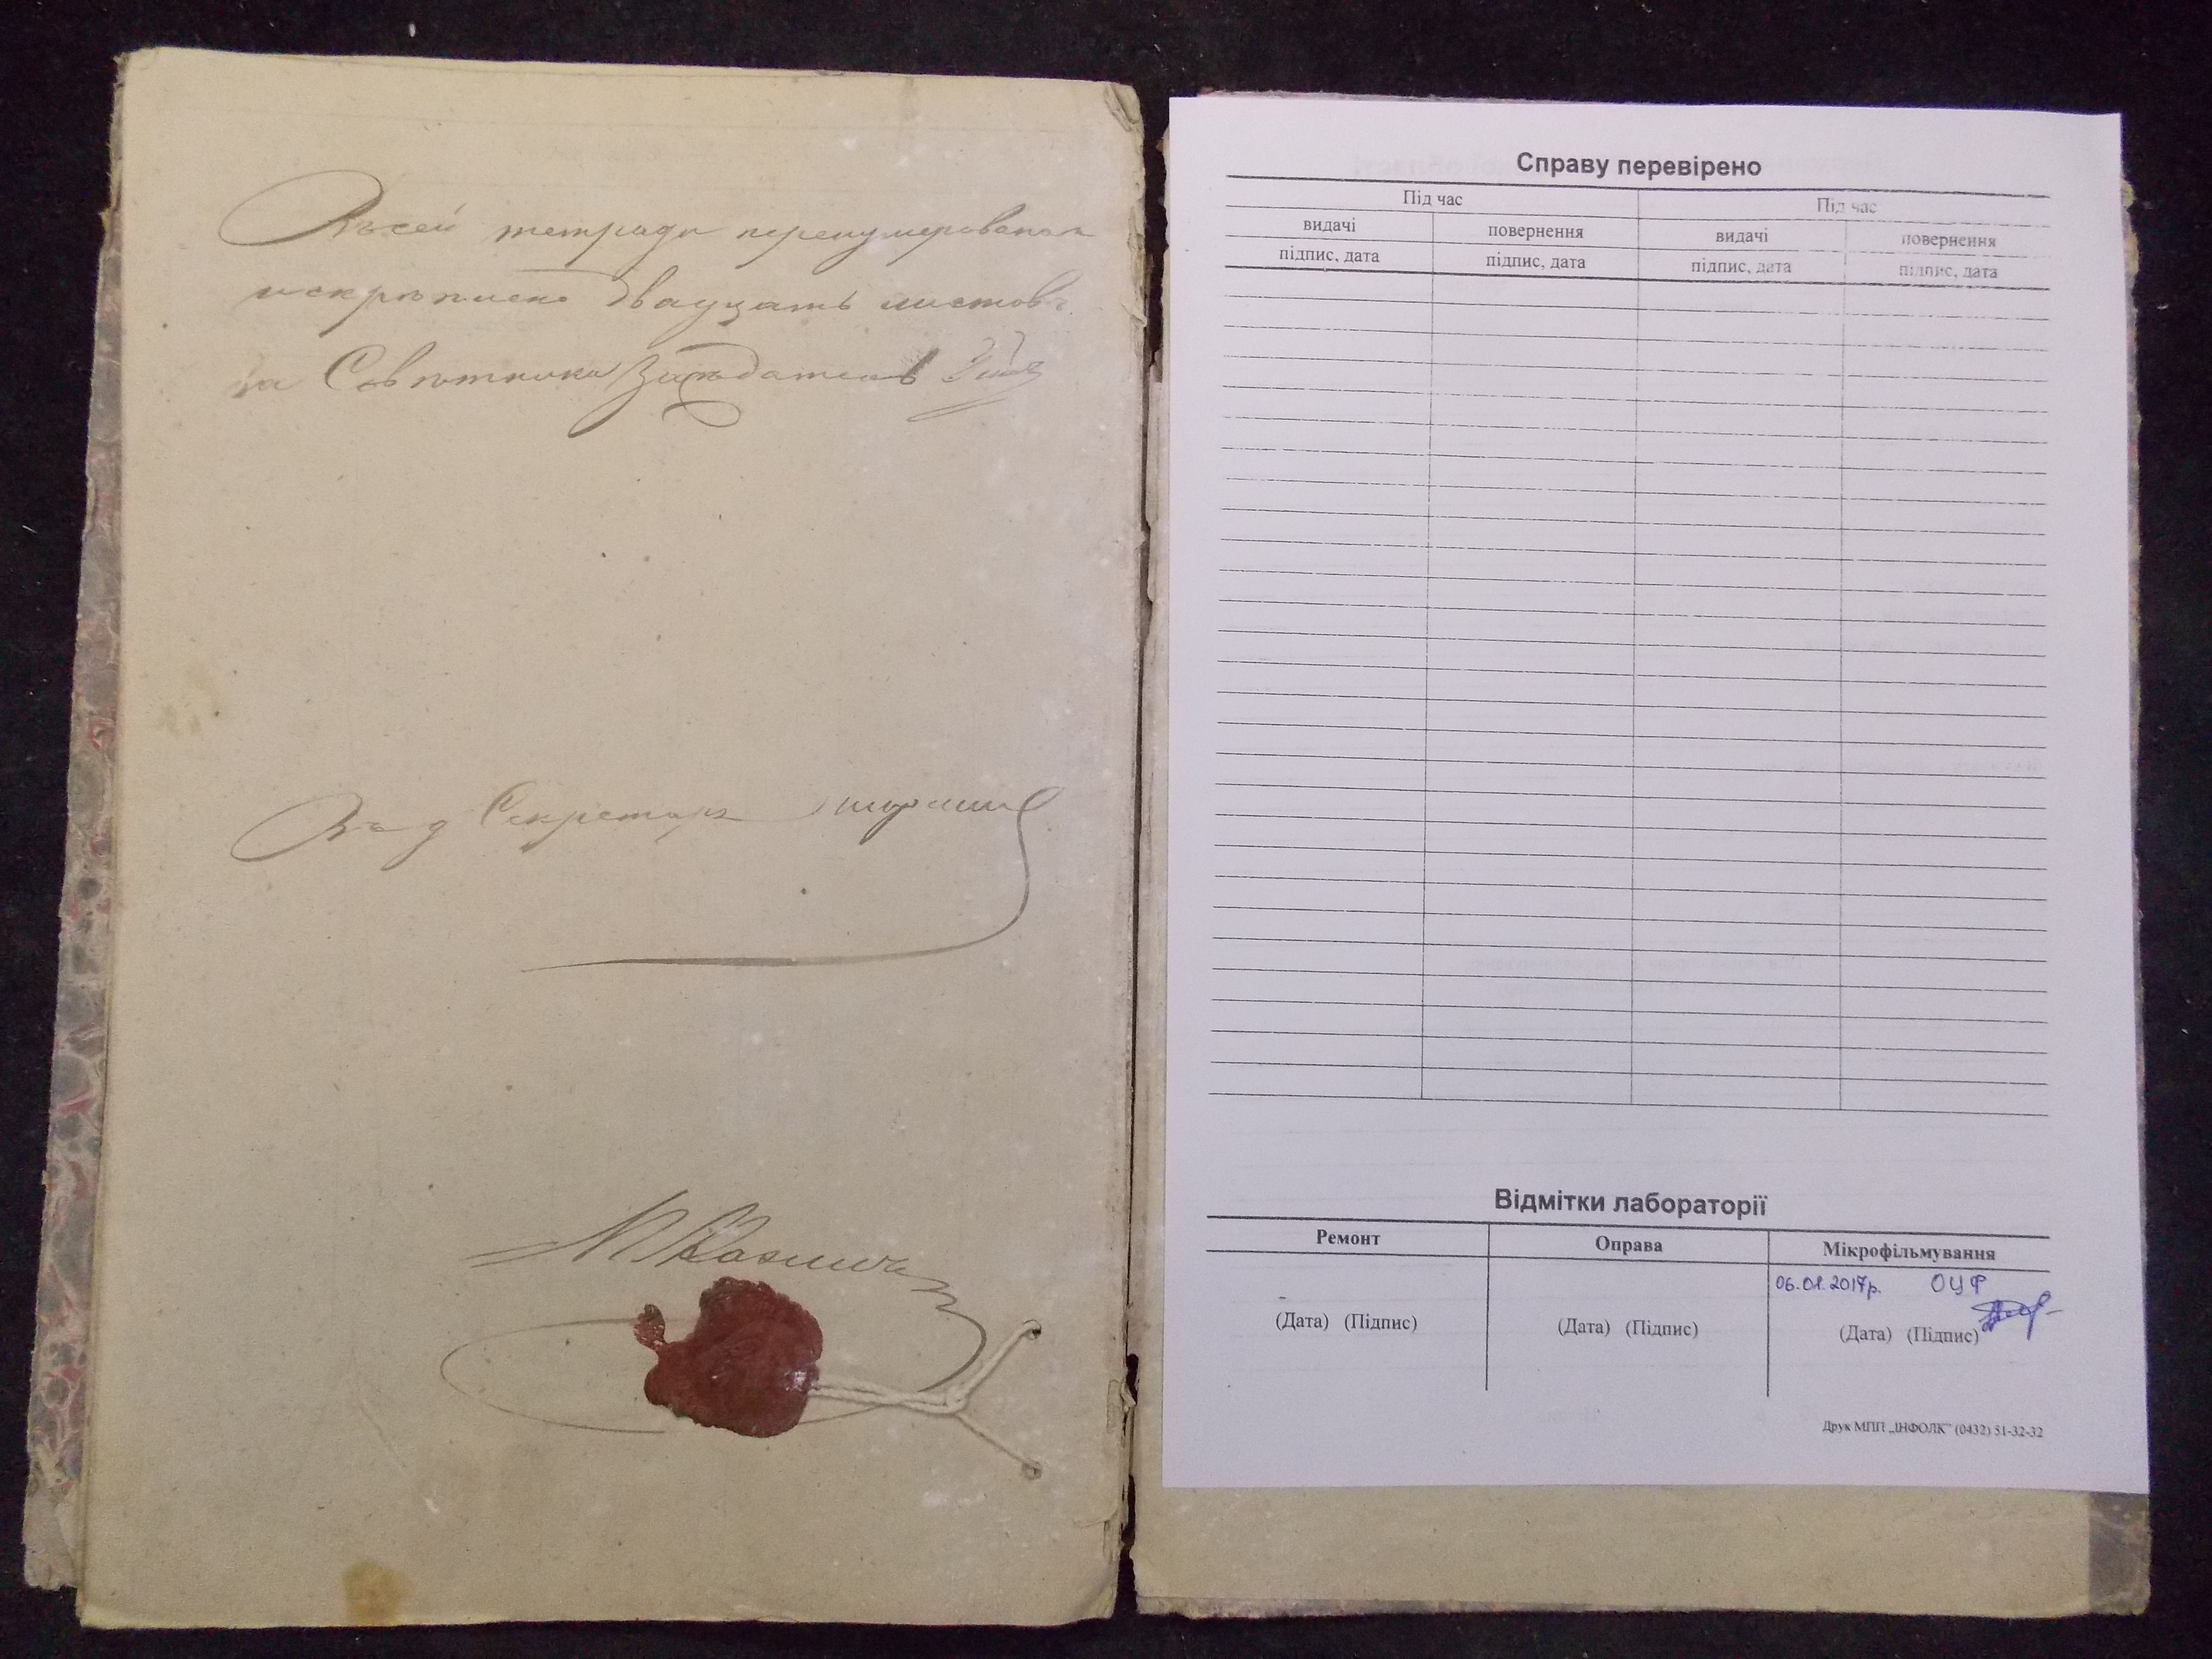 Въ сей тетради перенумерованы
и скрѣплено двадцать листовъ
за Совѣтника Засѣдатель
Въ д Секретарь
Справу перевірено
Під час Під час
видачі повернення видачі повернення
підпис, дата підпис, дата підпис, дата підпис, дата
Відмітки лабораторії
Ремонт Оправа Мікрофільмування
06.01.2017р. ОЦФ
(Дата) (Підпис) (Дата) (Підпис) (Дата) (Підпис)
Друк МПП „ІНФОЛК" (0432) 51-32-32